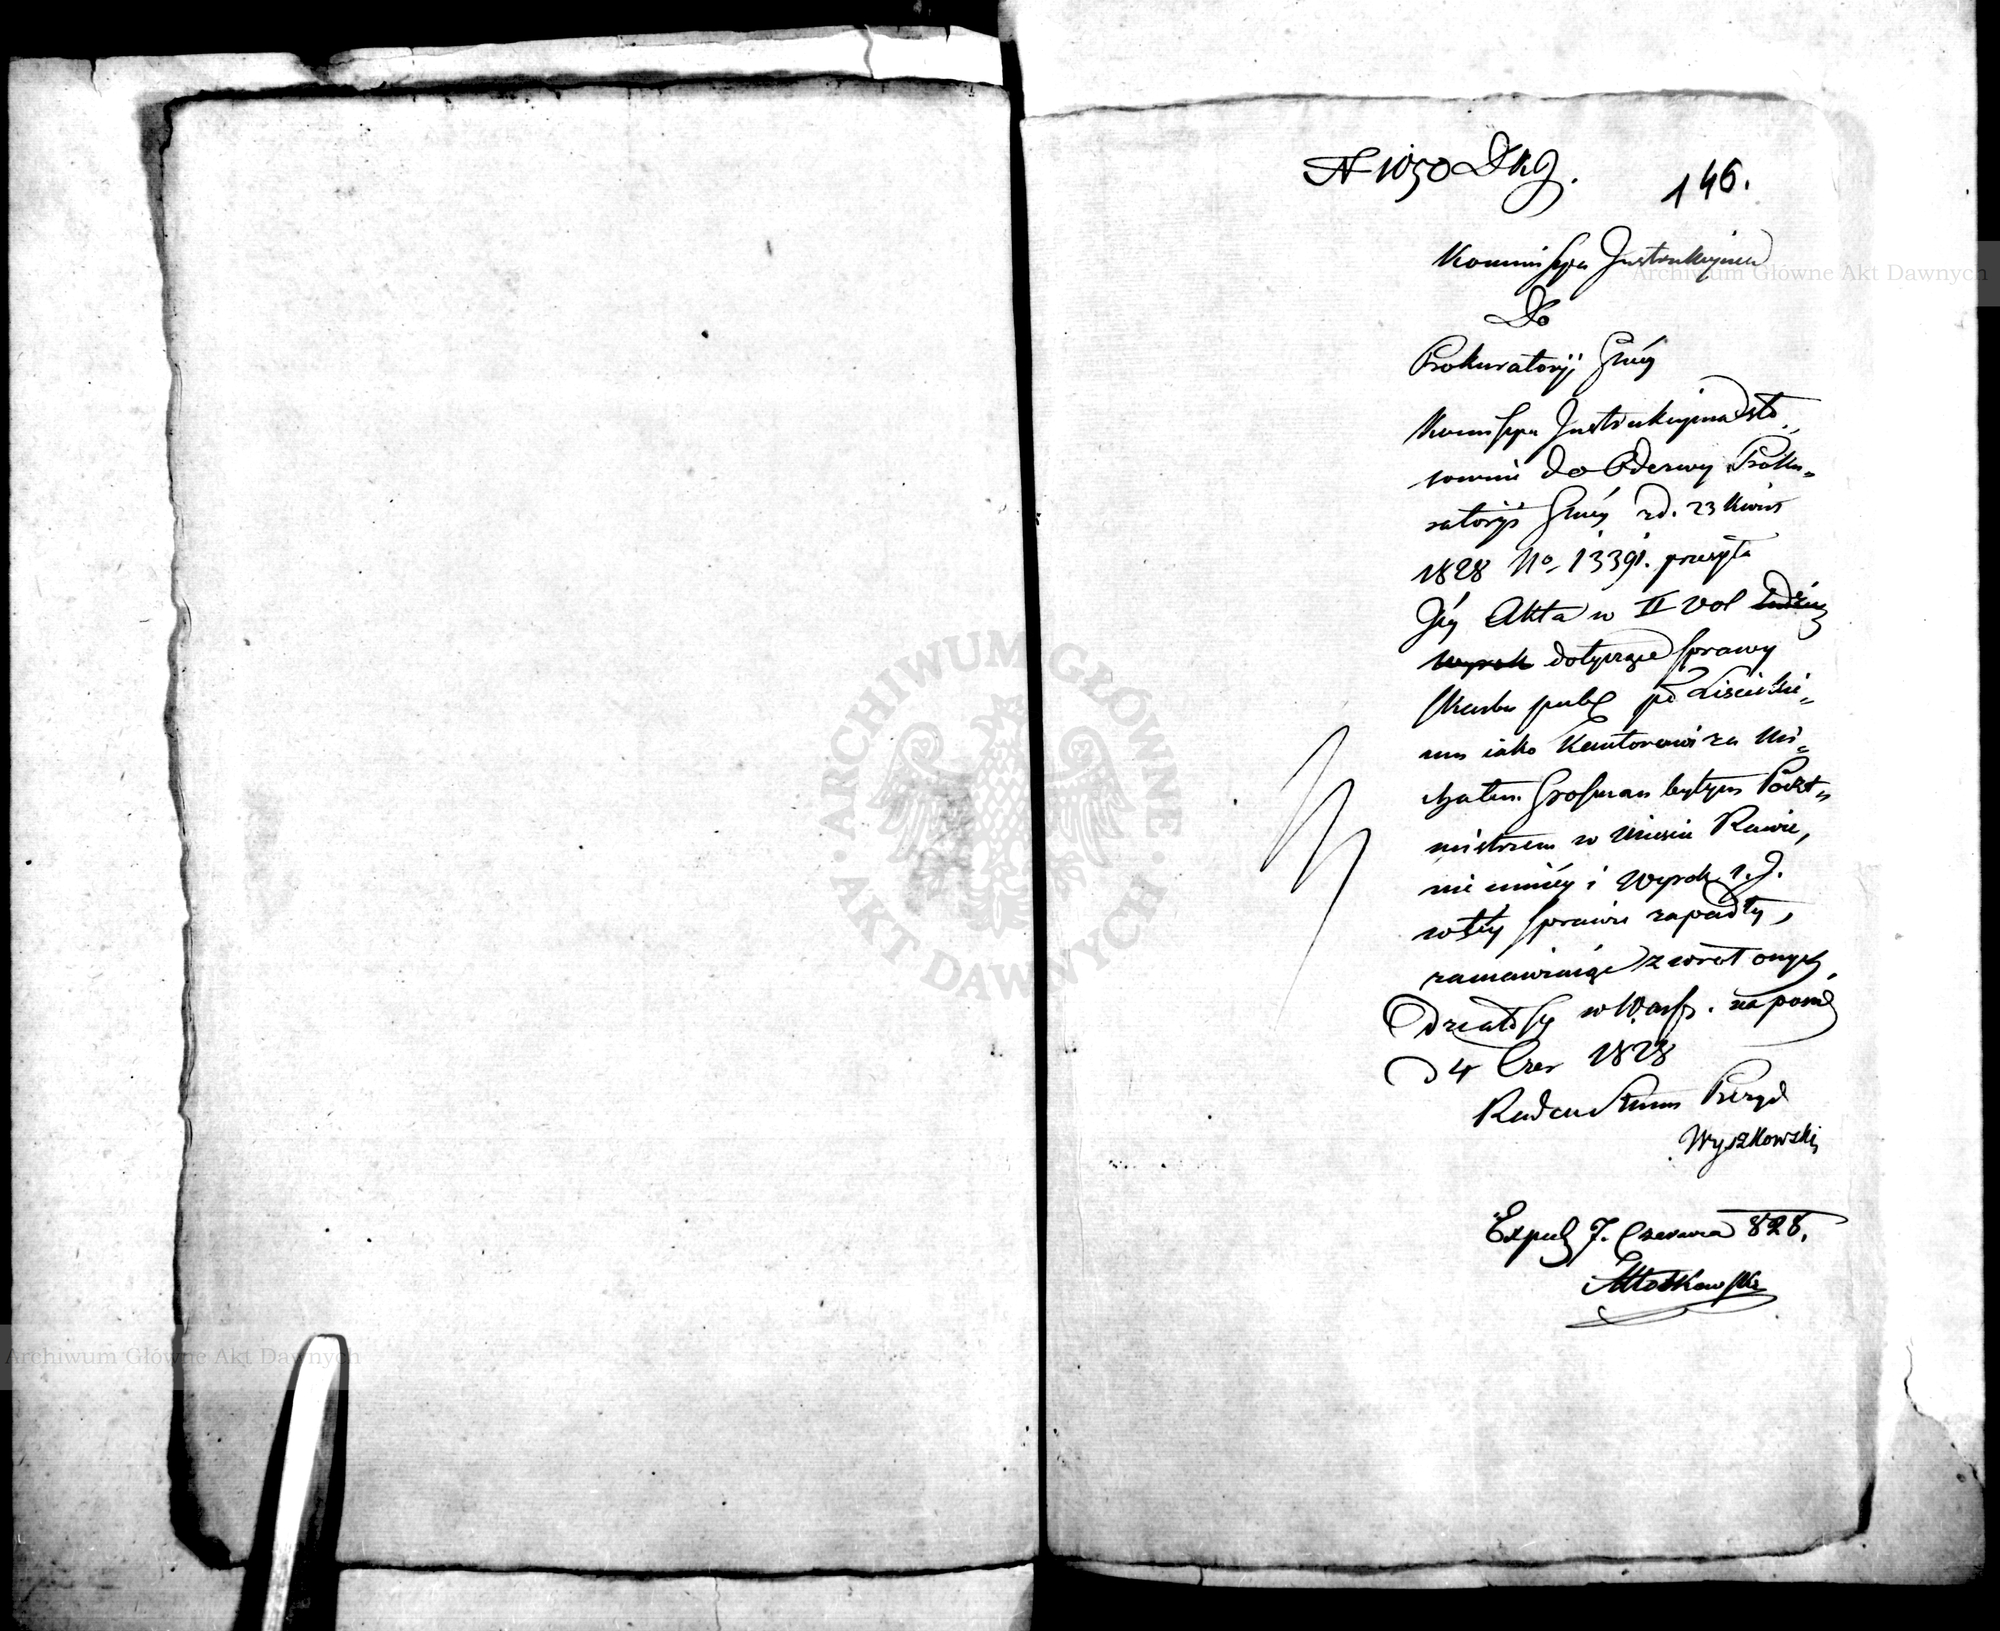 N 1050 DKG.
146.
Kommissya Instrukcyina
Do
Prokuratoryi Gnéy
Komissya Instrukcyina sto„
sownie do Odezwy Proku„
ratoryi Gnéy z d. 23 Kwiet
1828 No 13391. przesyła
Jéy Akta w II vol
wyrok dotyczące sprawy
Skarbu publ pko Liscickie„
mu iako Kantorowi za Mi„
chałem Grosman byłym Poczt„
mistrzem w Mieście Rawie,
nie mniéy i Wyrok
w téy sprawie zapadły,
zamawiaiąc zwrot onych.
Działo się w Warsz. na posied
d 4 Czer 1828
Radca Stanu Prezyd
Wyszkowski
Exped 7. Czerwca 828.
Młotkowski
ARCHIWUM GŁÓWNE
AKT DAWNYCH
Archiwum Główne Akt Dawnych
Archiwum Główne Akt Dawnych